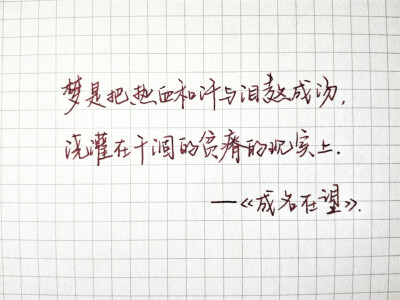 梦是把热血和汗与泪熬成汤,
浇灌在干涸的贫瘠的现实上.
——《成名在望》.